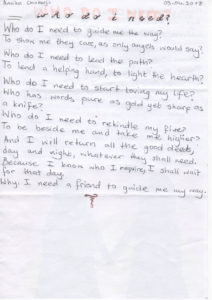 03.04.2018
who do i need?
Who do I need to guide me the way?
To show me they care, as only angels would say?
Who do I need to lead the path?
To lend a helping hand, to light the hearth?
Who do I need to start loving my life?
Who has words pure as gold yet sharp as
a knife?
Who do I need to rekindle my fire?
To be beside me and take me higher?
And I will return all the good deeds,
day and night, whatever they shall need.
Because I know who I require, I shall wait
for that day.
Why I need a friend to guide me my way.